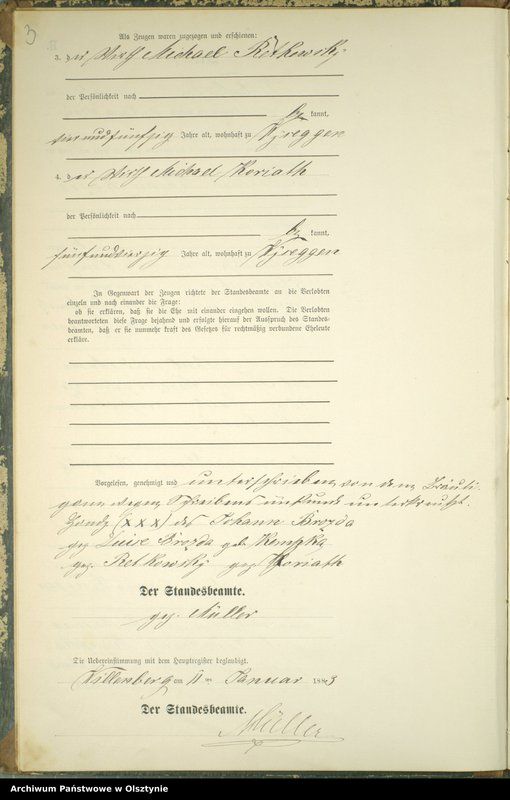 3
Als Zeugen waren zugezogen und erschienen:
3. der Wirth Michael Retkowsky
der Persönlichkeit nach
be kannt,
vierundfünfzig Jahre alt, wohnhaft zu
4. der Wirth Michael Koriath
der Persönlichkeit nach
be kannt,
fünfundvierzig Jahre alt, wohnhaft zu
In Gegenwart der Zeugen richtete der Standesbeamte an die Verlobten
einzeln und nach einander die Frage:
ob sie erklären, daß sie die Ehe mit einander eingehen wollen. Die Verlobten
beantworteten diese Frage bejahend und erfolgte hierauf der Ausspruch des Standes-
beamten, daß er sie nunmehr kraft des Gesetzes für rechtmäßig verbundene Eheleute
erkläre.
Vorgelesen, genehmigt und unterschrieben, von dem Bräuti-
gam wegen Schreibens unkunde unterkreuzt.
Handz (XXX) des Johann Brozda
gez Luise Brozda geb Kempka
gez. Retkowsky gez Koriath
Der Standesbeamte.
gez. Müller
Die Uebereinstimmung mit dem Hauptregister beglaubigt.
Willenberg am 11 ten Januar 1883
Der Standesbeamte.
Müller
Archiwum Państwowe w Olsztynie